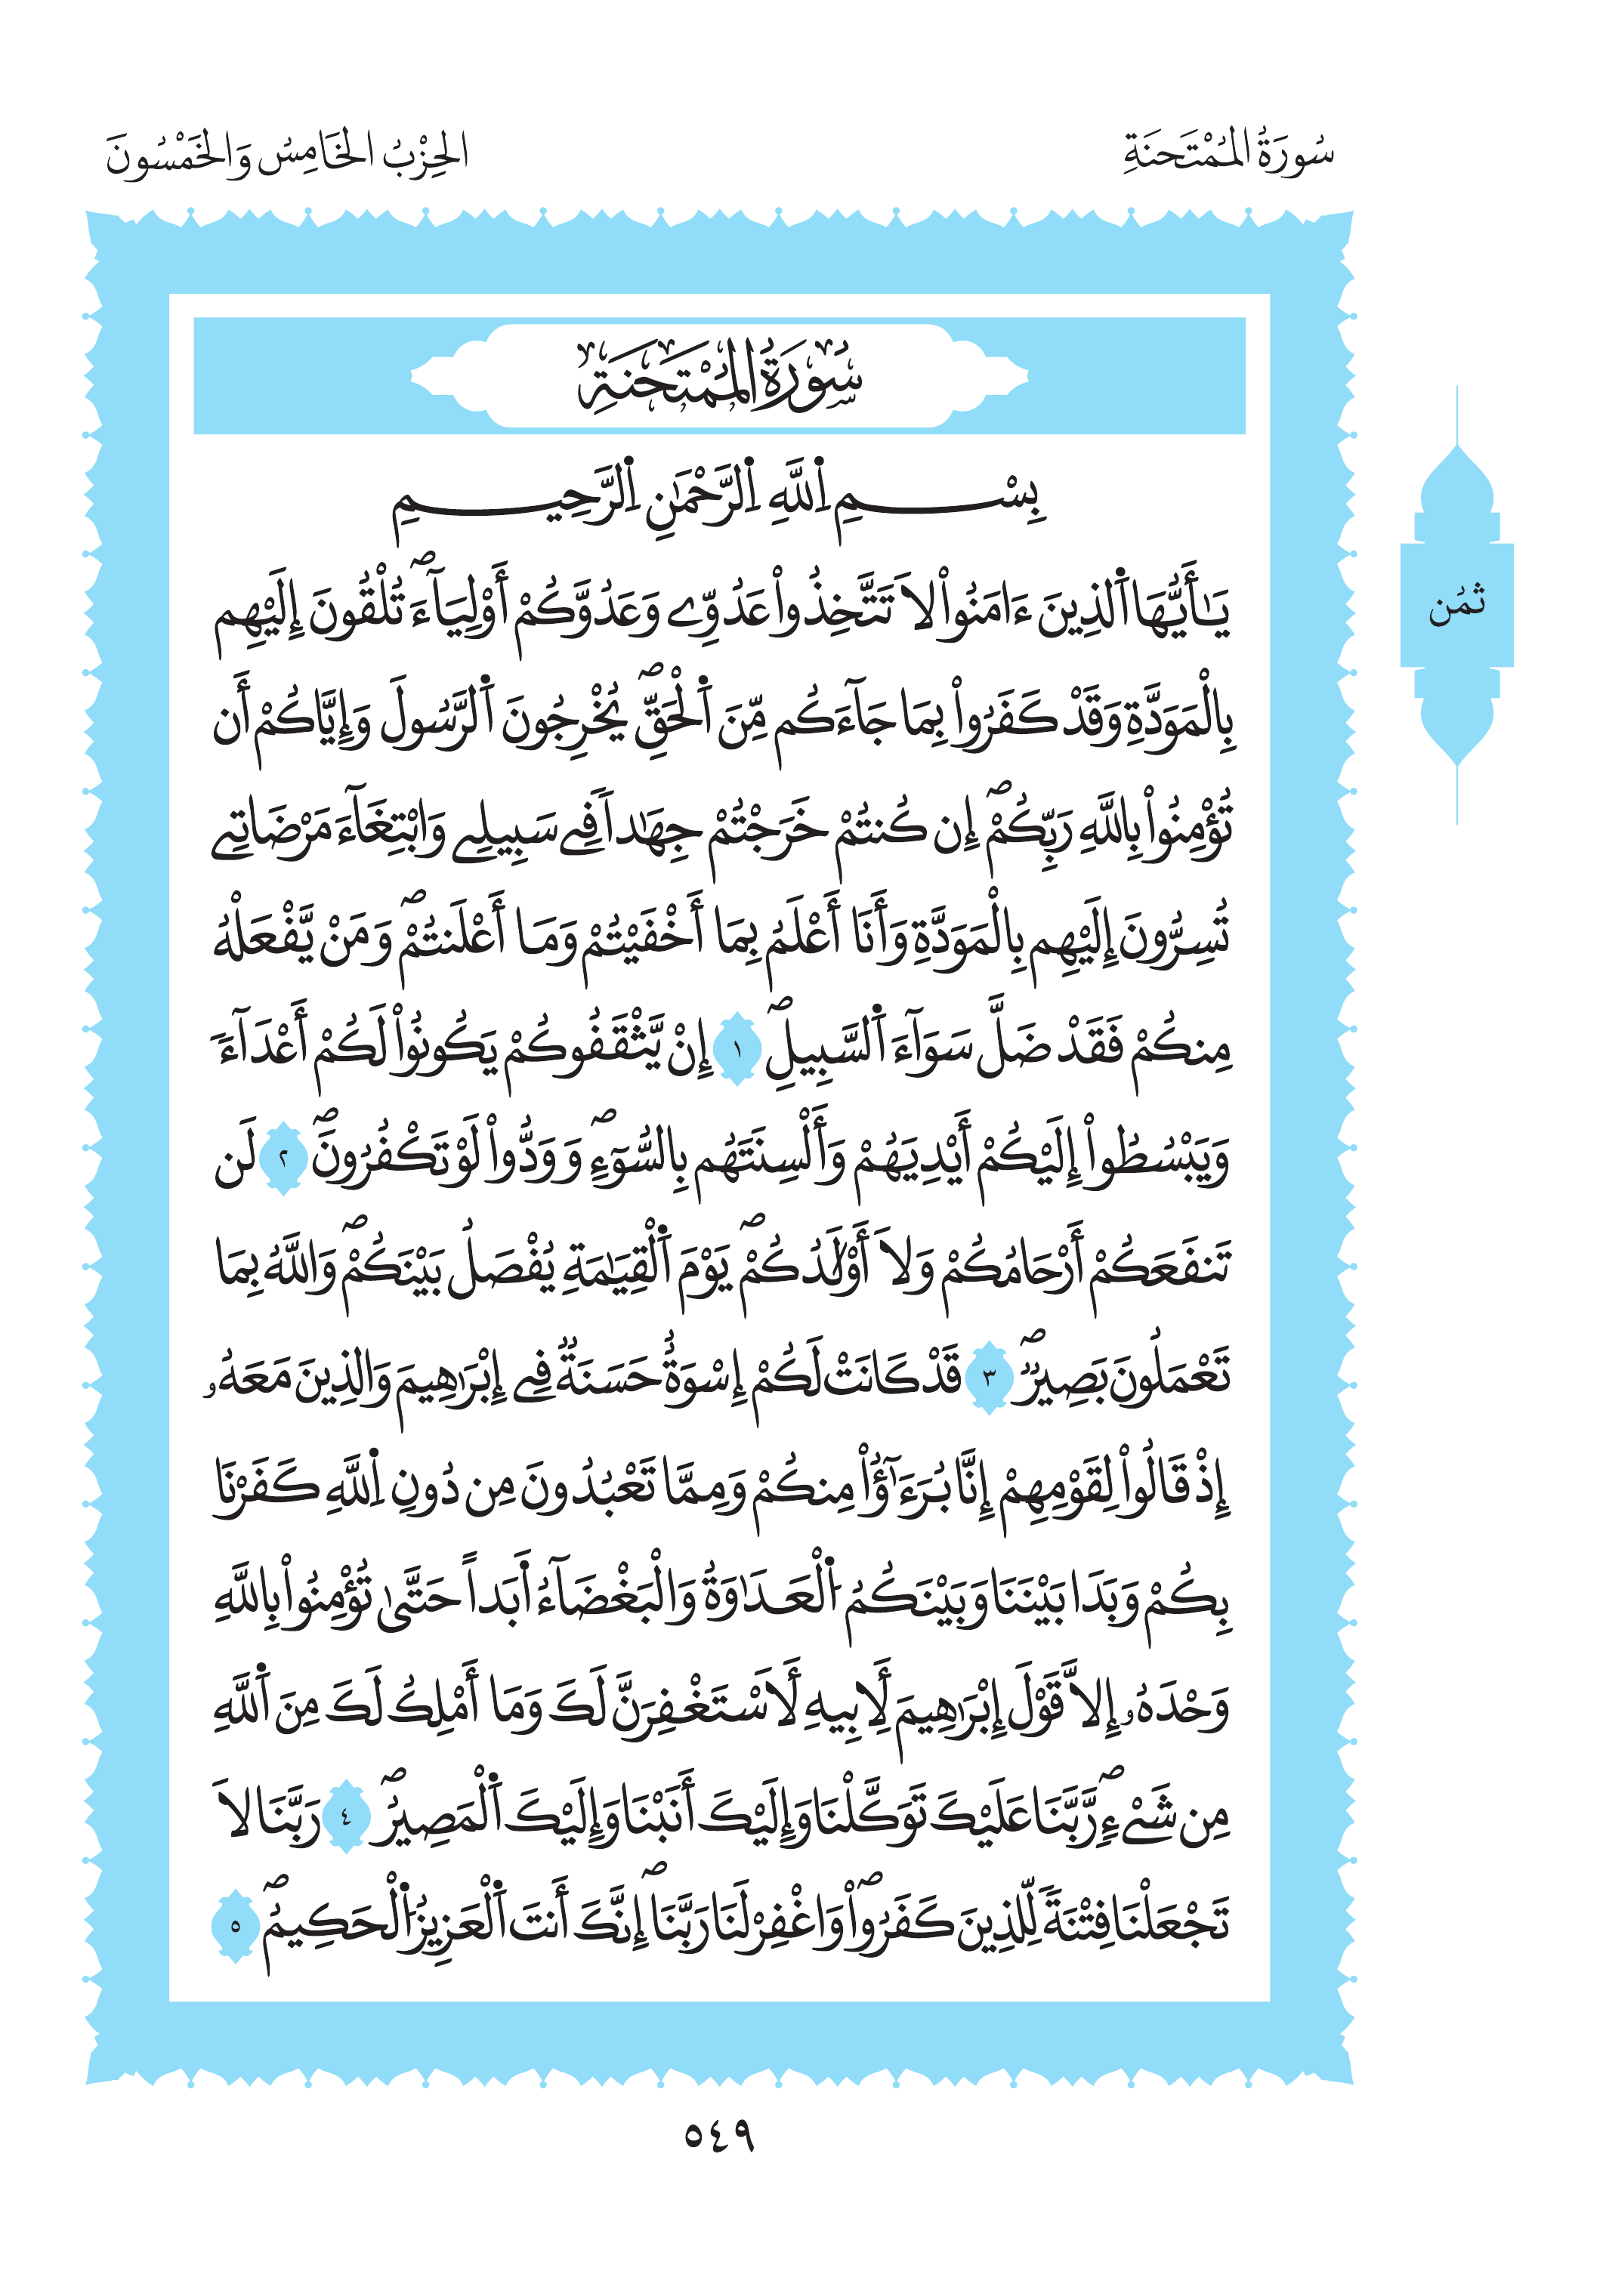 سُورَةُ الْمُمْتَحَنَةِ
الحِزْبُ الخَامِسُ وَالخَمْسُونَ
سُورَةُ الْمُمْتَحَنَةِ
بِسْمِ اِ۬للَّهِ اِ۬لرَّحْمَٰنِ اِ۬لرَّحِيمِ
يَٰٓأَيُّهَا اَ۬لذِينَ ءَامَنُواْ لَا تَتَّخِذُواْ عَدُوِّے وَعَدُوَّكُمْ أَوْلِيَآءَۖ تُلْقُونَ إِلَيْهِم
بِالْمَوَدَّةِ وَقَدْ كَفَرُواْ بِمَا جَآءَكُم مِّنَ اَ۬لْحَقِّۖ يُخْرِجُونَ اَ۬لرَّسُولَ وَإِيَّاكُمْ أَن
تُؤْمِنُواْ بِاللَّهِ رَبِّكُمْۖ إِن كُنتُمْ خَرَجْتُمْ جِهَٰداٗ فِے سَبِيلِے وَابْتِغَآءَ مَرْضَاتِے
تُسِرُّونَ إِلَيْهِم بِالْمَوَدَّةِ وَأَنَا أَعْلَمُ بِمَا أَخْفَيْتُمْ وَمَا أَعْلَنتُمْۖ وَمَنْ يَّفْعَلْهُ
مِنكُمْ فَقَدْ ضَلَّ سَوَآءَ اَ۬لسَّبِيلِۖ ١ إِنْ يَّثْقَفُوكُمْ يَكُونُواْ لَكُمْ أَعْدَآءَٗ
وَيَبْسُطُواْ إِلَيْكُمْ أَيْدِيَهُمْ وَأَلْسِنَتَهُم بِالسُّوٓءِۖ وَوَدُّواْ لَوْ تَكْفُرُونَۖ ٢ لَن
تَنفَعَكُمْ أَرْحَامُكُمْ وَلَا أَوْلَٰدُكُمْۖ يَوْمَ اَ۬لْقِيَٰمَةِ يُفْصَلُ بَيْنَكُمْۖ وَاللَّهُ بِمَا
تَعْمَلُونَ بَصِيرٞۖ ٣ قَدْ كَانَتْ لَكُمْ إِسْوَةٌ حَسَنَةٞ فِے إِبْرَٰهِيمَ وَالذِينَ مَعَهُۥ
إِذْ قَالُواْ لِقَوْمِهِمْ إِنَّا بُرَءَٰٓؤُاْ مِنكُمْ وَمِمَّا تَعْبُدُونَ مِن دُونِ اِ۬للَّهِ كَفَرْنَا
بِكُمْ وَبَدَا بَيْنَنَا وَبَيْنَكُمُ اُ۬لْعَدَٰوَةُ وَالْبَغْضَآءُ أَبَداً حَتَّىٰ تُؤْمِنُواْ بِاللَّهِ
وَحْدَهُۥ إِلَّا قَوْلَ إِبْرَٰهِيمَ لِأَبِيهِ لَأَسْتَغْفِرَنَّ لَكَ وَمَا أَمْلِكُ لَكَ مِنَ اَ۬للَّهِ
مِن شَےْءٖۖ رَّبَّنَا عَلَيْكَ تَوَكَّلْنَا وَإِلَيْكَ أَنَبْنَا وَإِلَيْكَ اَ۬لْمَصِيرُۖ ٤ رَبَّنَا لَا
تَجْعَلْنَا فِتْنَةٗ لِّلذِينَ كَفَرُواْۖ وَاغْفِرْ لَنَا رَبَّنَاۖ إِنَّكَ أَنتَ اَ۬لْعَزِيزُ اُ۬لْحَكِيمُۖ ٥
ثُمُن
٥٤٩